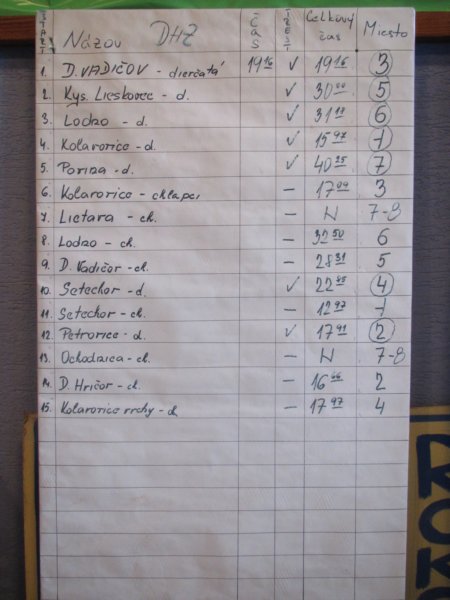 ŠTART Názov DHZ ČAS TREST Celkový čas Miesto
1. D. VADIČOV - dierčatá 19 16 ✓ 19 16 3
2. Kys. Lieskovec - d. ✓ 30 00 5
3. Lodno - d. ✓ 31 18 6
4. Kolarovice - d. ✓ 15 97 1
5. Porina - d. ✓ 40 25 7
6. Kolarovice - chlapci — 17 09 3
7. Lietava - ch. — N 7-8
8. Lodno - ch. — 32 50 6
9. D. Vadičov - ch. — 28 31 5
10. Setechov - d. ✓ 22 85 4
11. Setechov - ch. — 12 97 1
12. Petrovice - d. ✓ 17 91 2
13. Ochodnica - ch. — N 7-8
14. D. Hričov - ch. — 16 66 2
15. Kolarovice vrchy - ch — 17 97 4